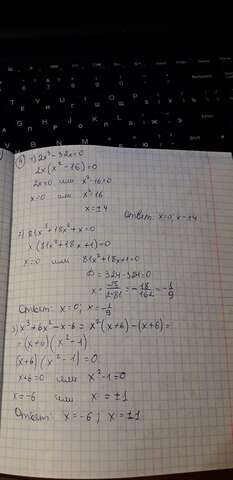 ④ 1) 2x³-32x=0
2x(x²-16)=0
2x=0 или x²-16=0
x=0 или x²=16
x=±4
Ответ: x=0; x=±4
2) 81x³+18x²+x=0
x(81x²+18x+1)=0
x=0 или 81x²+18x+1=0
D=324-324=0
x=-18/2·81=-18/162=-1/9
Ответ: x=0; x=-1/9
3) x³+6x²-x-6=x²(x+6)-(x+6)=
=(x+6)(x²-1)
(x+6)(x²-1)=0
x+6=0 или x²-1=0
x=-6 или x=±1
Ответ: x=-6; x=±1